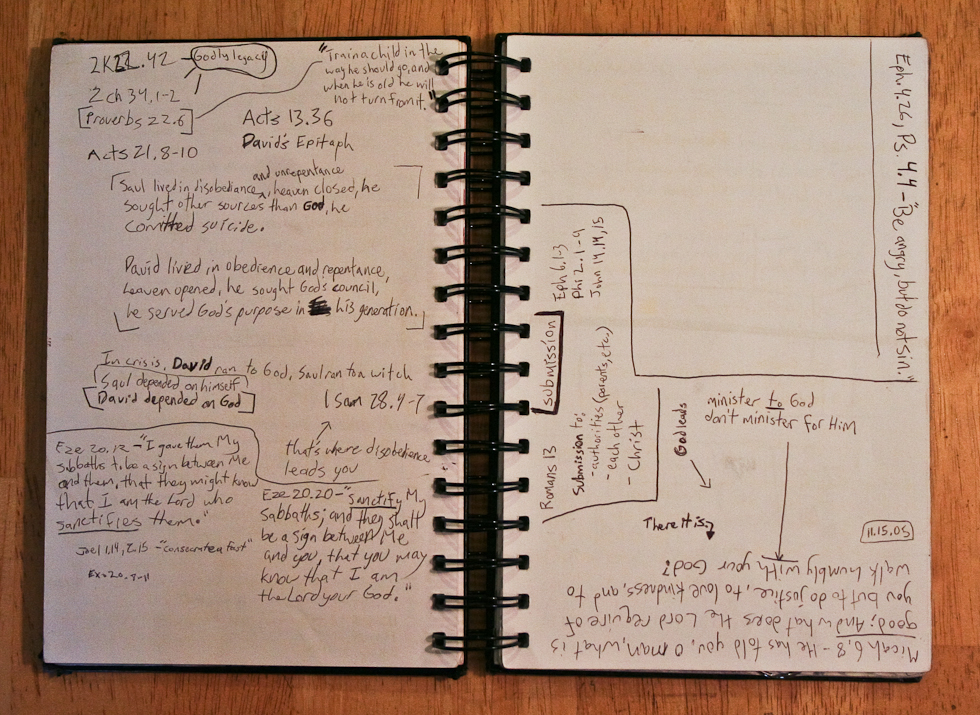 2K22.42 - Godly legacy
2 ch 34.1-2
[Proverbs 22.6]
"Train a child in the
way he should go, and
when he is old he will
not turn from it."
Acts 13.36
David's Epitaph
Acts 21.8-10
and unrepentance
Saul lived in disobedience ^, heaven closed, he
sought other sources than God, he
committed suicide.
David lived in obedience and repentance,
heaven opened, he sought God's council,
he served God's purpose in his generation.
In crisis, David ran to God, Saul ran to a witch
Saul depended on himself
David depended on God
1 Sam 28.4-7
that's where disobedience
leads you
Eze 20.12 - "I gave them My
Sabbaths to be a sign between Me
and them, that they might know
that I am the Lord who
sanctifies them."
Joel 1.14, 2.15 - "consecrate a fast"
Ex. 20.9-11
Eze 20.20 - "sanctify My
Sabbaths; and they shall
be a sign between Me
and you, that you may
know that I am
the Lord your God."
Eph. 4.26, Ps. 4.4 - "Be angry, but do not sin."
Submission
Eph 6.1-3
Phi 2.1-9
John 14.14,15
Romans 13
Submission to:
- authorities (parents, etc.)
- each other
- Christ
God leads
minister to God
don't minister for Him
There it is:
11.15.05
Micah 6.8 - He has told you, O man, what is
good; And what does the Lord require of
you but to do justice, to love kindness, and to
walk humbly with your God?